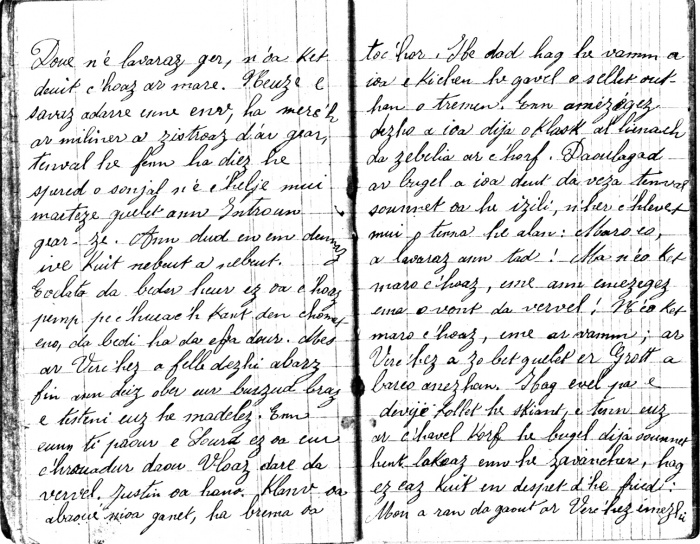 Doue n'é lavaraz ger, n'oa ket
deuit c'hoaz ar mare. Neuze e
savaz adarre enne env, ha merc'h
ar miliner a zistroaz d'ar gear,
tenval he fenn ha diez he
spered o sonjal n'é c'helje mui
marteze guelet ann Introun
gear-ze. Ann dud en em dennaz
ive kuit nebeut a nebeut.
Ecclato da beder heur ez oa c'hoaz
pemp pe c'hueac'h kant den chomet
eno, da bedi ha da efa dour. Mes
ar Verc'hez a felle dezhi abarz
fin ann deiz ober eur burzud braz
e testeni euz he madelez. Enn
eunn ti paour e Lourd ez oa eur
c'hrouadur daou vloaz dare da
vervel. Justin oa hano. Klanv oa
abaoue m'oa ganet, ha brema oa
toc'hor. He dad hag he vamm a
ioa e kichen he gavel o sellet out-
han o tremen. Enn amezegez
dezho a ioa dija o klask al linach
da zebelia ar c'horf. Daoulagad
ar bugel a ioa deut da veza tenval
sounnet oa he izili, n'her c'hlevet
mui o tenna he alan: Maro eo,
a lavaraz ann tad! Ma n'eo ket
maro c'hoaz, eme ann emezegez
ema o vont da vervel! N'eo ket
maro c'hoaz, eme ar vamm; ar
Verc'hez a zo bet guelet er Grott a
bareo anezhan. Hag evel pa e
devije kollet he skiant, e tenn euz
ar c'havel korf he bugel dija sounnet
hen lakeaz enn he zavancher, hag
ez eaz kuit en despet d'he fried:
Mon a ran da gaout ar Verc'hez emezhi